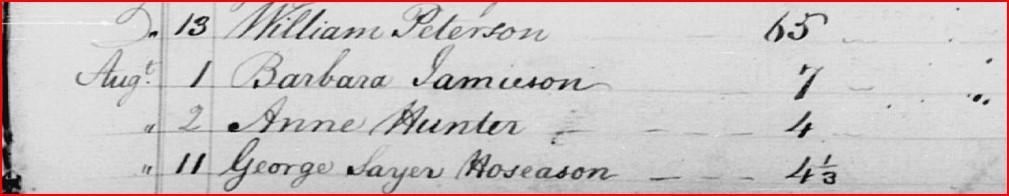 " 13 William Peterson 65
Augt. 1 Barbara Jamieson 7 "
" 2 Anne Hunter 4
" 11 George Sayer Hoseason 4 1/3